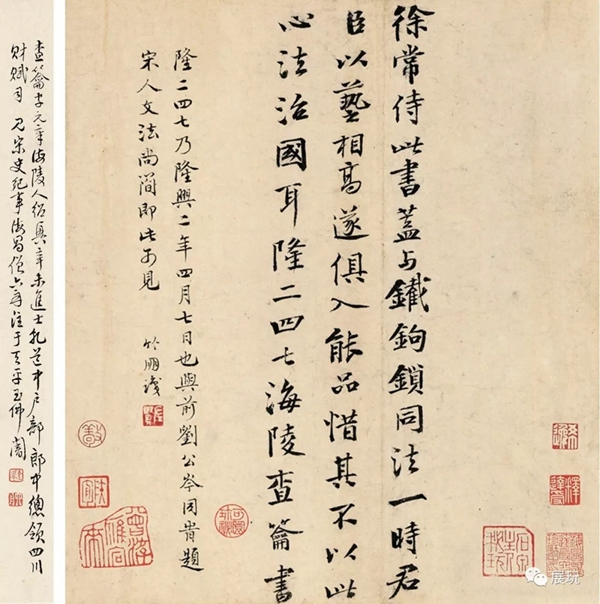 徐常侍此書蓋与鐵鉤鎖同法一時君
臣以藝相高遂俱入能品惜其不以此
心法治國耳隆二四七海陵查籥書
隆二四七乃隆興二年四月七日也與前劉公岑同題
宋人文法尚簡即此可見
竹朋識
查籥字元章海陵人紹興辛未進士乾道中戶部郎中總領四川
財賦司 見宋史紀事海昌僧六舟注于天平玉佛閣
展玩